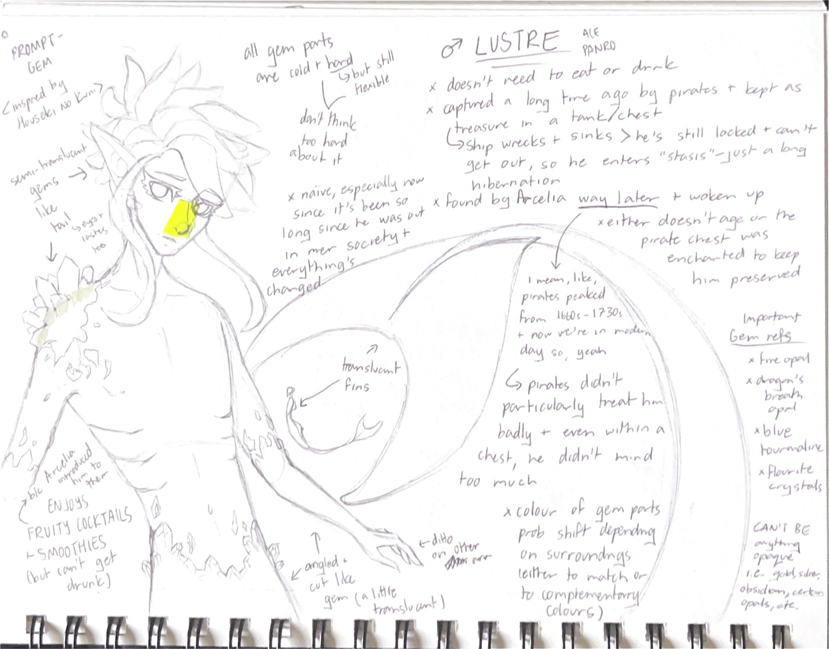 PROMPT-
GEM
(inspired by
Houseki No Kuni)
semi-translucent
gems
like
tail
↳ eyes +
lashes
too
all gem parts
are cold + hard
↳ but still
flexible
don't think
too hard
about it
x naive, especially now
since it's been so
long since he was out
in mer society +
everything's
changed
♂ LUSTRE
ACE
PANRO
x doesn't need to eat or drink
x captured a long time ago by pirates + kept as
treasure in a tank/chest
↳ ship wrecks + sinks > he's still locked + can't
get out, so he enters "stasis" - just a long
hibernation
x found by Arcelia way later + woken up
x either doesn't age or the
pirate chest was
enchanted to keep
him preserved
I mean, like,
pirates peaked
from 1660s-1730s
+ now we're in modern
day so, yeah
↳ pirates didn't
particularly treat him
badly + even within a
chest, he didn't mind
too much
x colour of gem parts
prob shift depending
on surroundings
(either to match or
to complementary
colours)
translucent
fins
Important
Gem refs
x fire opal
x dragon's
breath
opal
x blue
tourmaline
x flourite
crystals
CAN'T BE
anything
opaque
i.e. gold, silver,
obsidian, certain
opals, etc.
b/c Arcelia
introduced
him to them
ENJOYS
FRUITY COCKTAILS
+ SMOOTHIES
(but can't get
drunk)
angled +
cut like
gem (a little
translucent)
← ditto
on other
arm